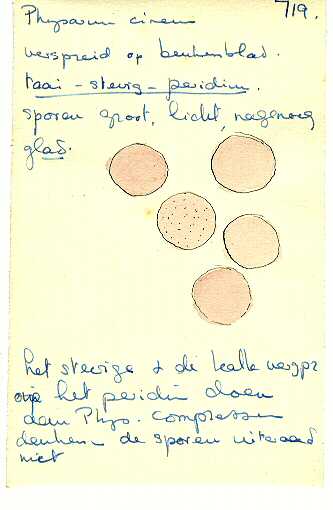 719.
Physarum cinereum
verspreid op beukenblad.
taai - stevig - peridium.
sporen groot, licht, nagenoeg
glad.
het stevige & de kalk
op het peridium doen
aan Phys. compressum
denken - de sporen uiteraard
niet